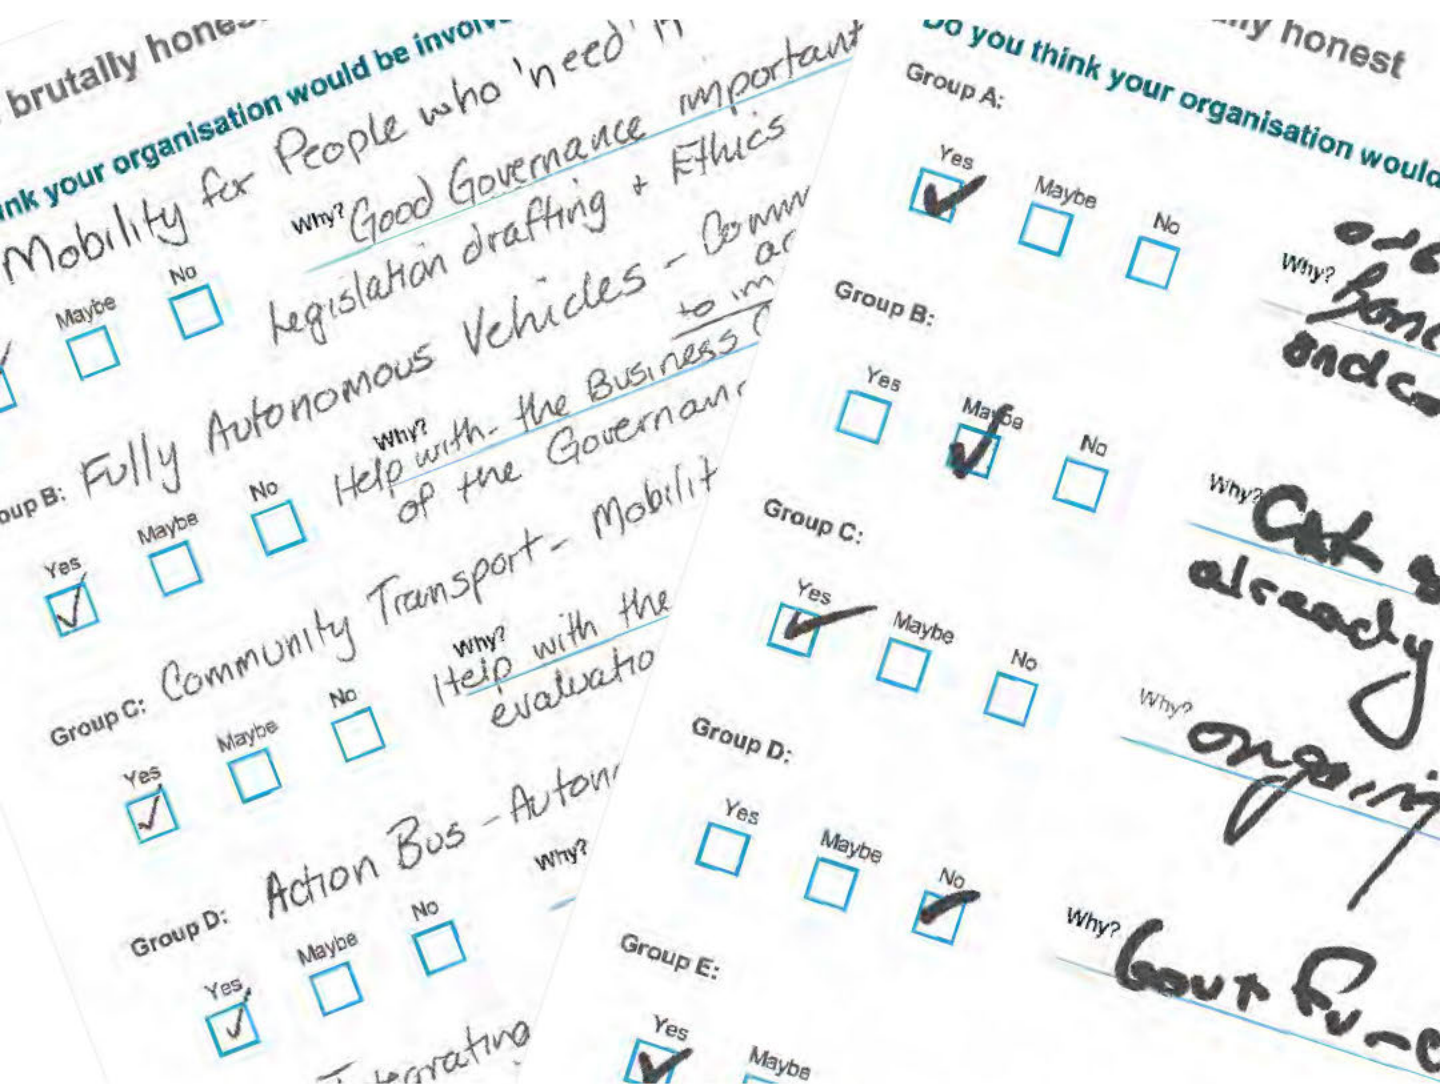 brutally hones
nk your organisation would be involv
Mobility for People who 'need' it
Maybe No
Why? Good Governance important
Legislation drafting + Ethics
Group B: Fully Autonomous Vehicles - Comm
to im
Yes Maybe No
Why? Help with the Business C
of the Governan
Group C: Community Transport - Mobilit
Yes Maybe No
Why? Help with the
evaluatio
Group D: Action Bus - Auton
Yes Maybe No
Why?
Integrating
ly honest
Do you think your organisation would
Group A:
Yes Maybe No
Why?
Group B:
Yes Maybe No
Why?
already
Group C:
Yes Maybe No
Why? ongoing
Group D:
Yes Maybe No
Why? Govt Fu
Group E:
Yes Maybe